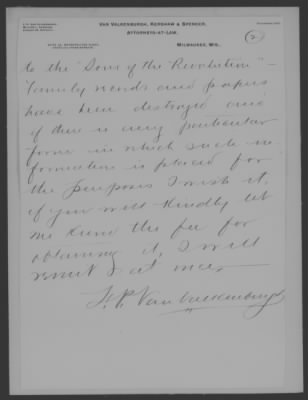 VAN VALKENBURGH, KERSHAW & SPENCER,
ATTORNEYS-AT-LAW.
MILWAUKEE, WIS.,
(2)
to the "Sons of the Revolution" –
family records and papers
have been destroyed and
if there is any particular
form in which such in-
formation is placed for
the purposes I wish it,
if you will kindly let
me know the fee for
obtaining it, I will
remit at once,
F. P. Van Valkenburgh